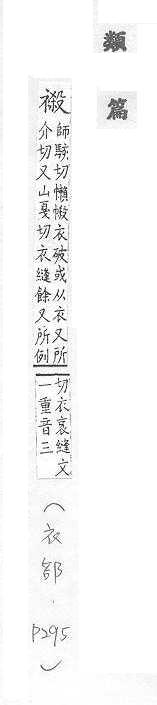 類篇
師駭切衣破或从衣又所
介切又山戛切衣縫餘又所例
切衣衺縫文
一重音三
(衣部.P295)